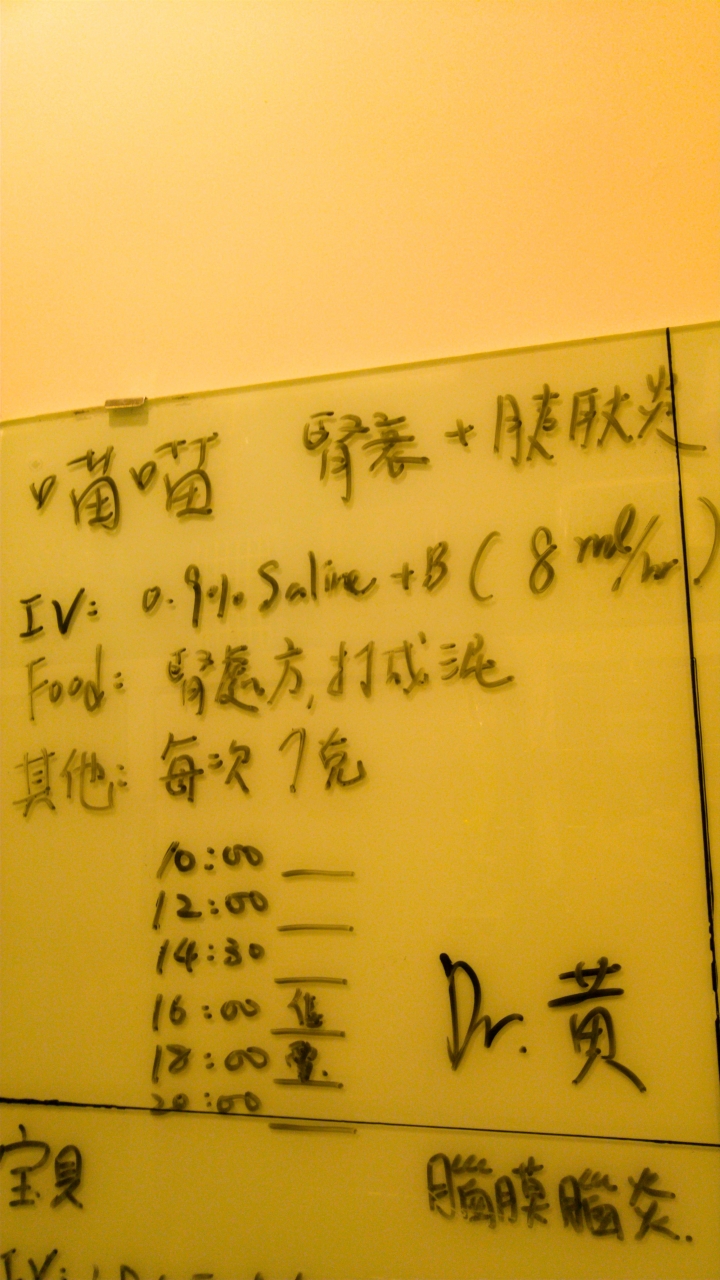 喵喵 腎衰 + 胰胰炎
IV: 0.9% Saline + B ( 8 ml/hr )
Food: 腎處方, 打成泥
其他: 每次 7克
10:00
12:00
14:30
16:00
18:00
20:00
Dr. 黃
宝貝 腦膜腦炎.
IV: